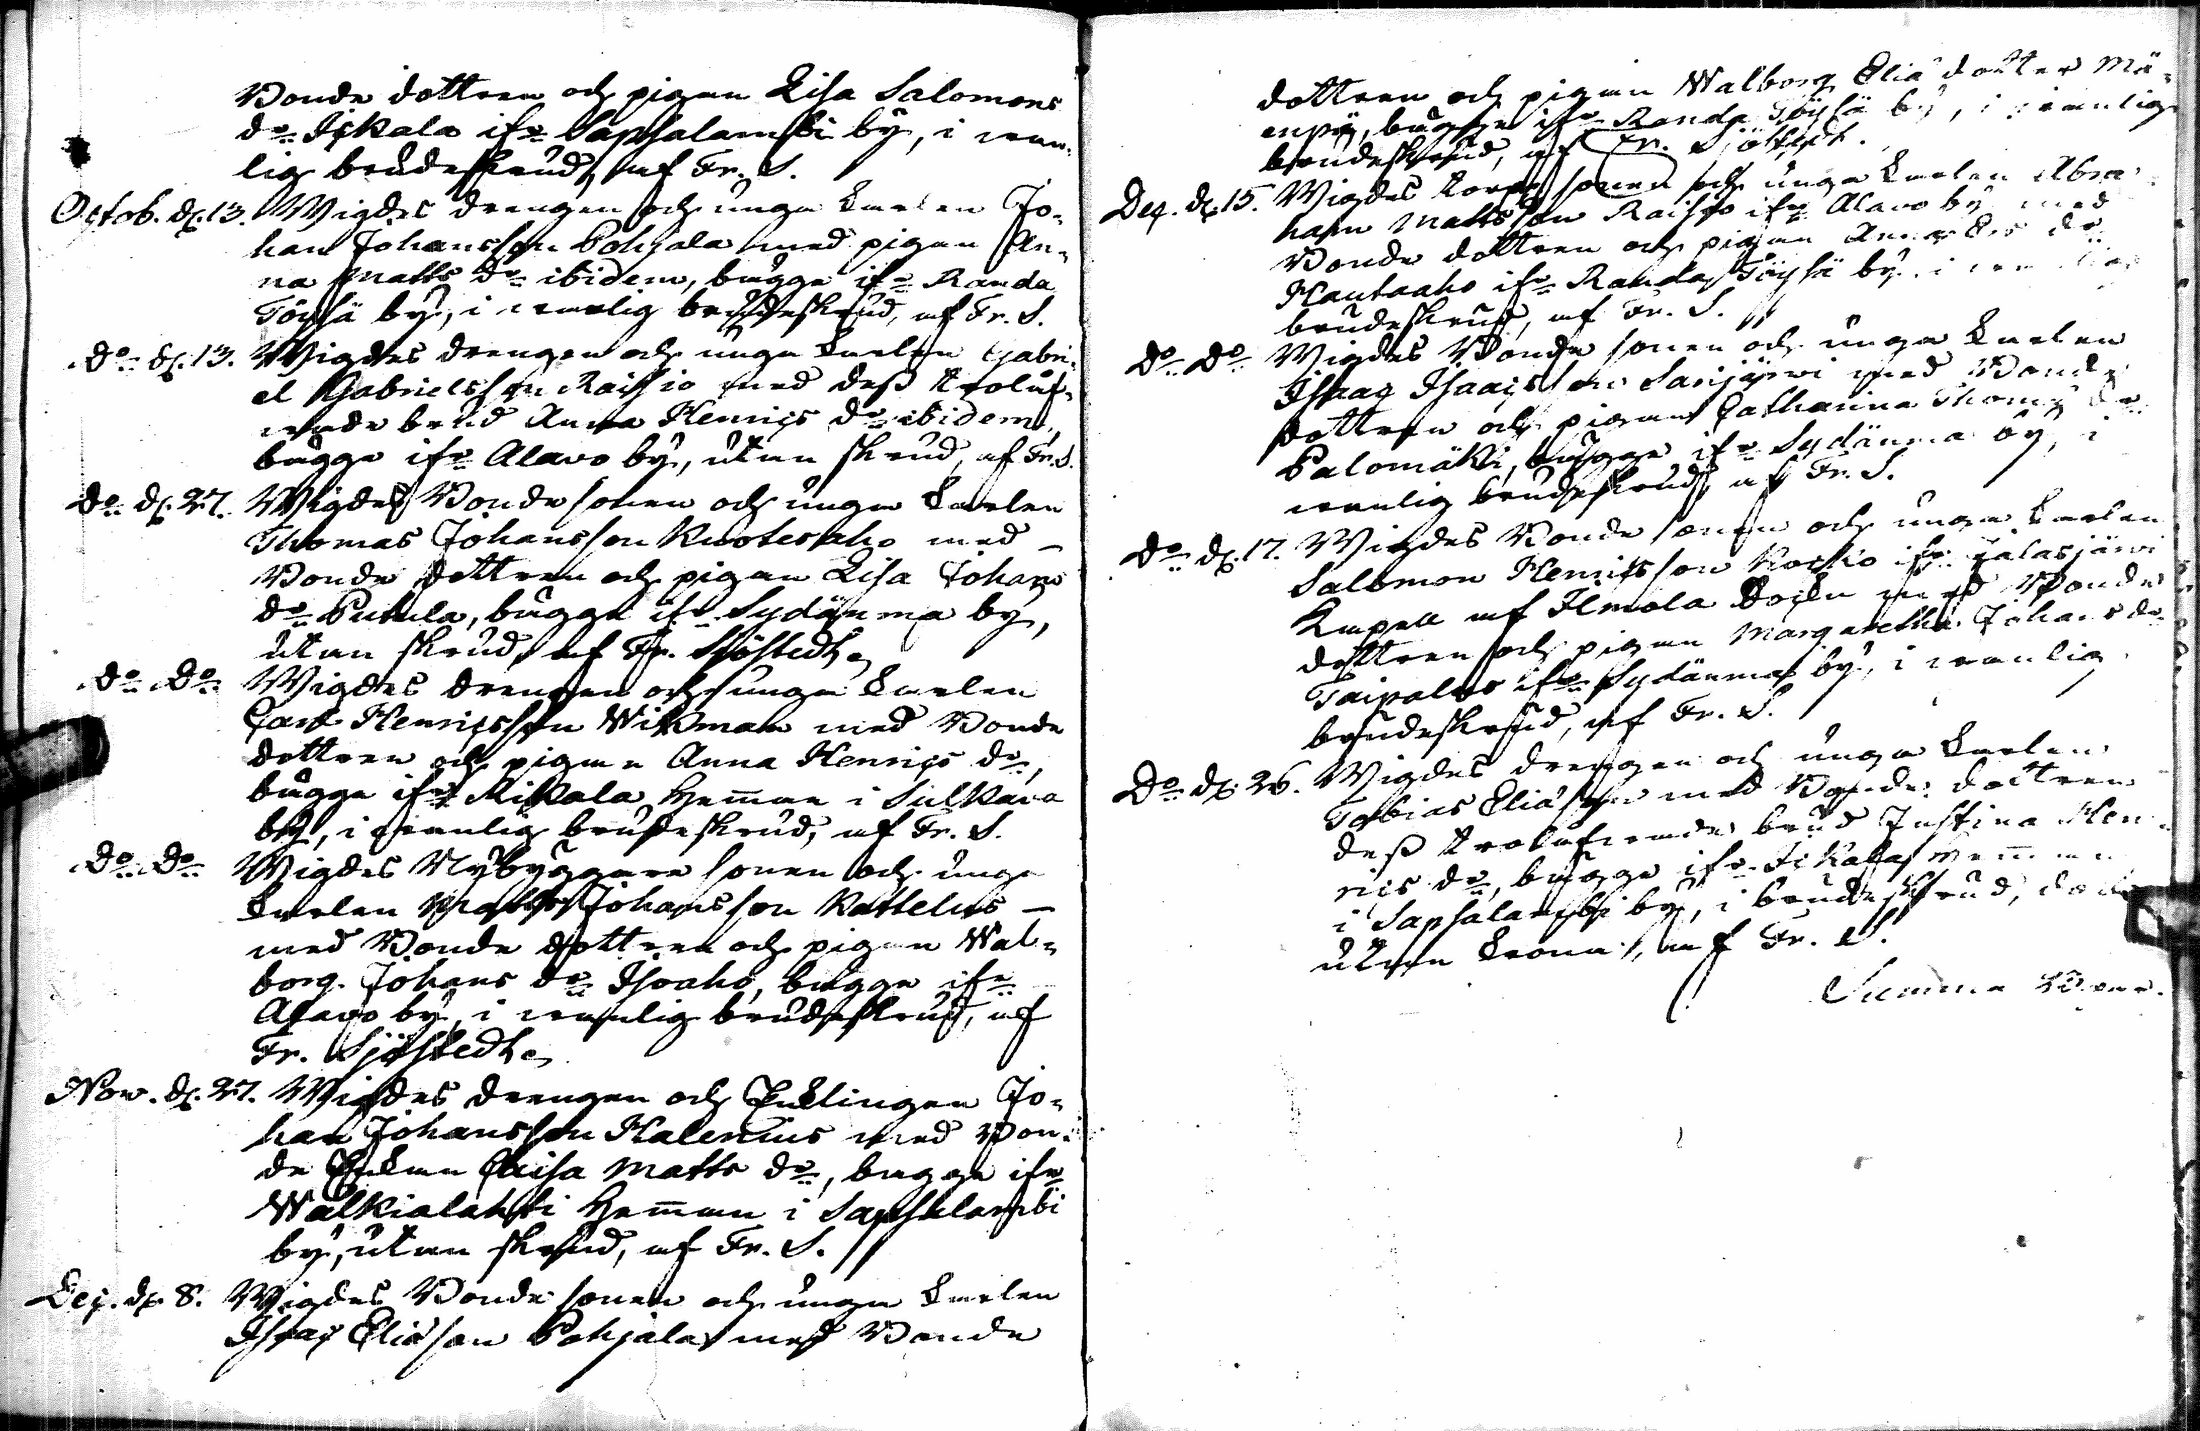 Bonde dottren och pigan Lisa Salomons
dr Iskala ifr Sapsalambi by, i van-
lig brudeskrud, af Fr. S.
Octob. d. 13. Wigdes drengen och unga karlen Jo-
han Johansson Pohjala med pigan An-
na Matts dr ibidem, bägge ifr Randa
Töysä by, i vanlig brudeskrud, af Fr. S.
Do d. 13. Wigdes drengen och unga karlen Gabri-
el Gabrielsson Raisio med dess trolof-
wade brud Anna Henrics dr ibidem,
bägge ifr Alavo by, utan skrud, af Fr. S.
Do d. 27. Wigdes Bonde sonen och unga karlen
Thomas Johansson Kuotesaho med
Bonde dottren och pigan Lisa Johans
dr Putula, bägge ifr Sydänma by,
utan skrud, af Fr. Sjöstedt.
Do Do Wigdes drengen och unga karlen
Carl Henricsson Wikman med Bonde
dottren och pigan Anna Henrics dr,
bägge ifr Rikala Hemman i Sulkava
by, i vanlig brudeskrud, af Fr. S.
Do Do Wigdes Nybyggare sonen och unga
karlen Matts Johansson Kattelus
med Bonde dottren och pigan Wal-
borg Johans dr Isoaho, bägge ifr
Alavo by, i vanlig brudeskrud, af
Fr. Sjöstedt.
Nov. d. 27. Wigdes drengen och Enklingen Jo-
han Johansson Kalenius med Bon-
de Enkan Caisa Matts dr, bägge ifr
Walkialahti Hemman i Sapsalambi
by, utan skrud, af Fr. S.
Dec. d. 8. Wigdes Bonde sonen och unga karlen
Isaac Eliasson Pohjala med Bonde
dottren och pigan Walborg Elia dotter Mä-
enpä, bägge ifr Randa Töysä by, i vanlig
brudeskrud, af Fr. Sjöstedt.
Dec. d. 15. Wigdes torpare sonen och unga karlen Abra-
ham Mattsson Raisio ifr Alavo by med
Bonde dottren och pigan Anna dr
Hautaaho ifr Randa Töysä by, i vanlig
brudeskrud, af Fr. S.
Do Do Wigdes Bonde sonen och unga karlen
Isaac Isaacsson Sarijärvi med Bonde
dottren och pigan Catharina Thomæ dr
Palomäki, bägge ifr Sydänma by, i
vanlig brudeskrud, af Fr. S.
Do d. 17. Wigdes Bonde sonen och unga karlen
Salomon Henricsson Koskio ifr Jalasjärvi
Kapell af Ilmola Sockn med Bonde
dottren och pigan Margaretha Johans dr
Taipalus ifr Sydänma by, i vanlig
brudeskrud, af Fr. S.
Do d. 26. Wigdes drengen och unga karlen
Tobias Eliasson med Bonde dottren
dess trolofwade brud Justina Hen-
rics dr, bägge ifr Iskala Hemman
i Sapsalambi by, i brudeskrud, dock
utan krona, af Fr. S.
Summa par.